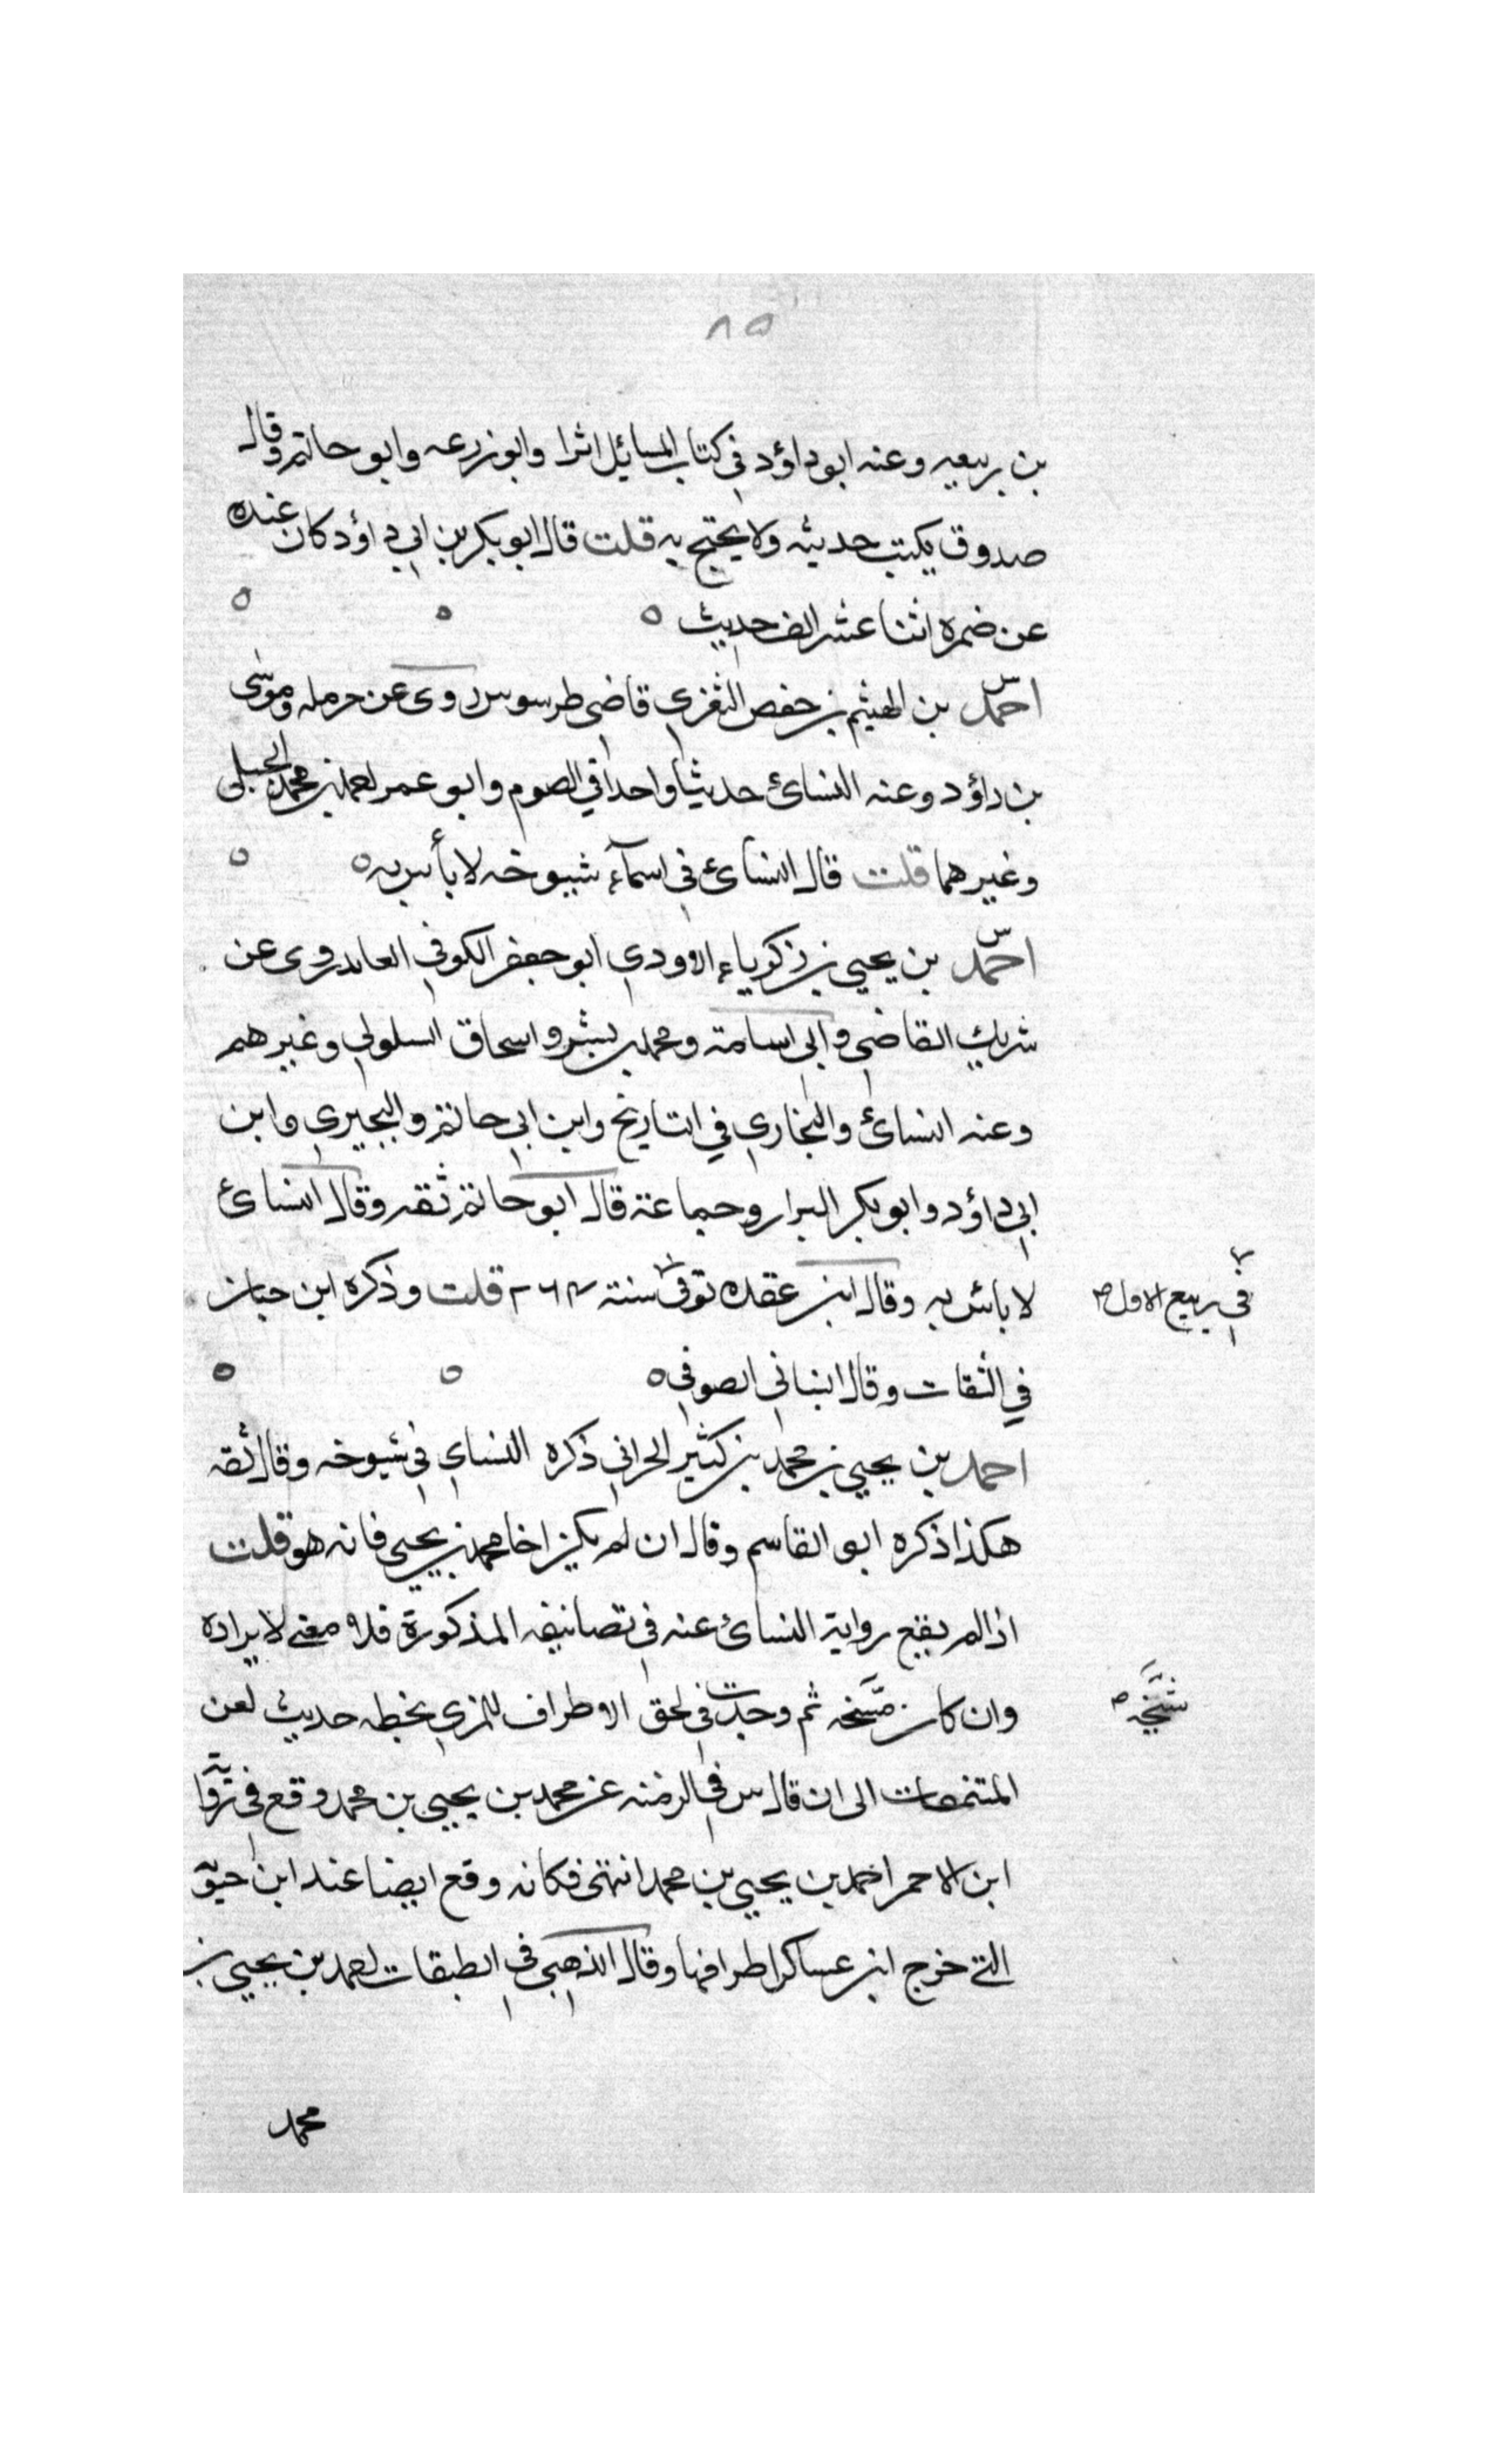 ٨٥
بن ربيعه وعنه ابو داؤد في كتاب المسائل اثرا وابو زرعه وابو حاتم وقال
صدوق يكتب حديثه ولا يحتج به قلت قال ابو بكر بن ابي داؤد كان عنده
عن ضمره اثنا عشر الف حديث ه ه ه
س
احمد بن الهيثم بن حفص الثغري قاضي طرسوس روى عن حرمله وموسى
بن داؤد وعنه النسائ حديثا واحدا في الصوم وابو عمر احمد بن محمد الجيلي
وغيرهما قلت قال النسائ في اسمآء شيوخه لا بأس به ه ه
س
احمد بن يحيى بن زكرياء الاودي ابو جعفر الكوفي العابد روى عن
شريك القاضي وابي اسامة ومحمد بن بشر واسحاق السلولي وغيرهم
وعنه النسائ والبخاري في التاريخ وابن ابي حاتم والبجيري وابن
ابي داؤد وابو بكر البزار وجماعة قال ابو حاتم ثقه وقال النسائ
لا بائس به وقال ابن عقده توفى سنة ٢٦٤ قلت وذكره ابن حبان
في ربيع الاول ص
في الثقات وقال البناني الصوفي ه ه ه
احمد بن يحيى بن محمد بن كثير الحراني ذكره النساي في شيوخه وقال ثقه
هكذا ذكره ابو القاسم وقال ان لم يكن اخا محمد بن يحيى فانه هو قلت
اذا لم يقع رواية النسائ عنه في تصانيفه المذكورة فلا معنى لايراده
وان كان شيخه ثم وجدت في لحق الاطراف للمزي بخطه حديث لعن
شيخه ص
المتنمصات الى ان قال س في الزينه عن محمد بن يحيى بن محمد وقع في رواية
ابن الاحمر احمد بن يحيى بن محمد انتهى فكانه وقع ايضا عند ابن حيو
التي خرج ابن عساكر اطرافها وقال الذهبي في الطبقات احمد بن يحيى بن
محمد